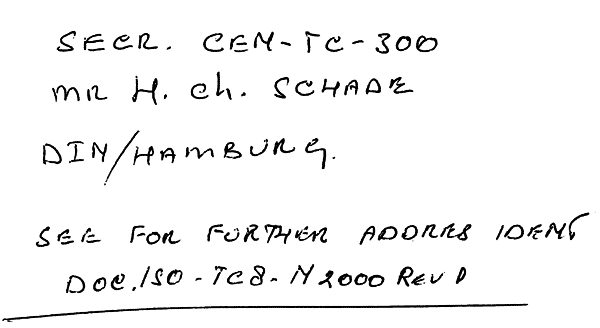 SECR. CEN-TC-300
MR H. Ch. SCHADE
DIN/HAMBURG.
SEE FOR FURTHER ADDRES IDENT
DOC.ISO-TC8-N2000 REV D